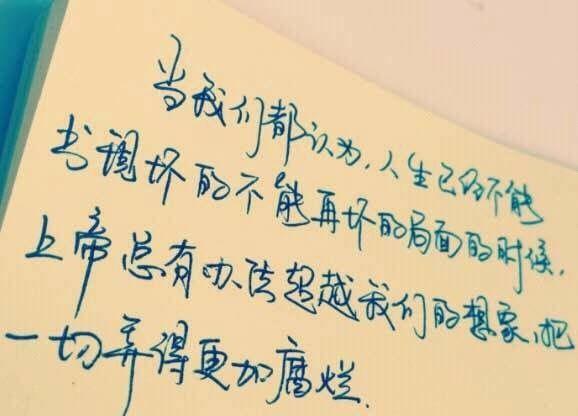 当我们都认为，人生已经不能
出现坏的不能再坏的局面的时候，
上帝总有办法超越我们的想象，把
一切弄得更加腐烂.